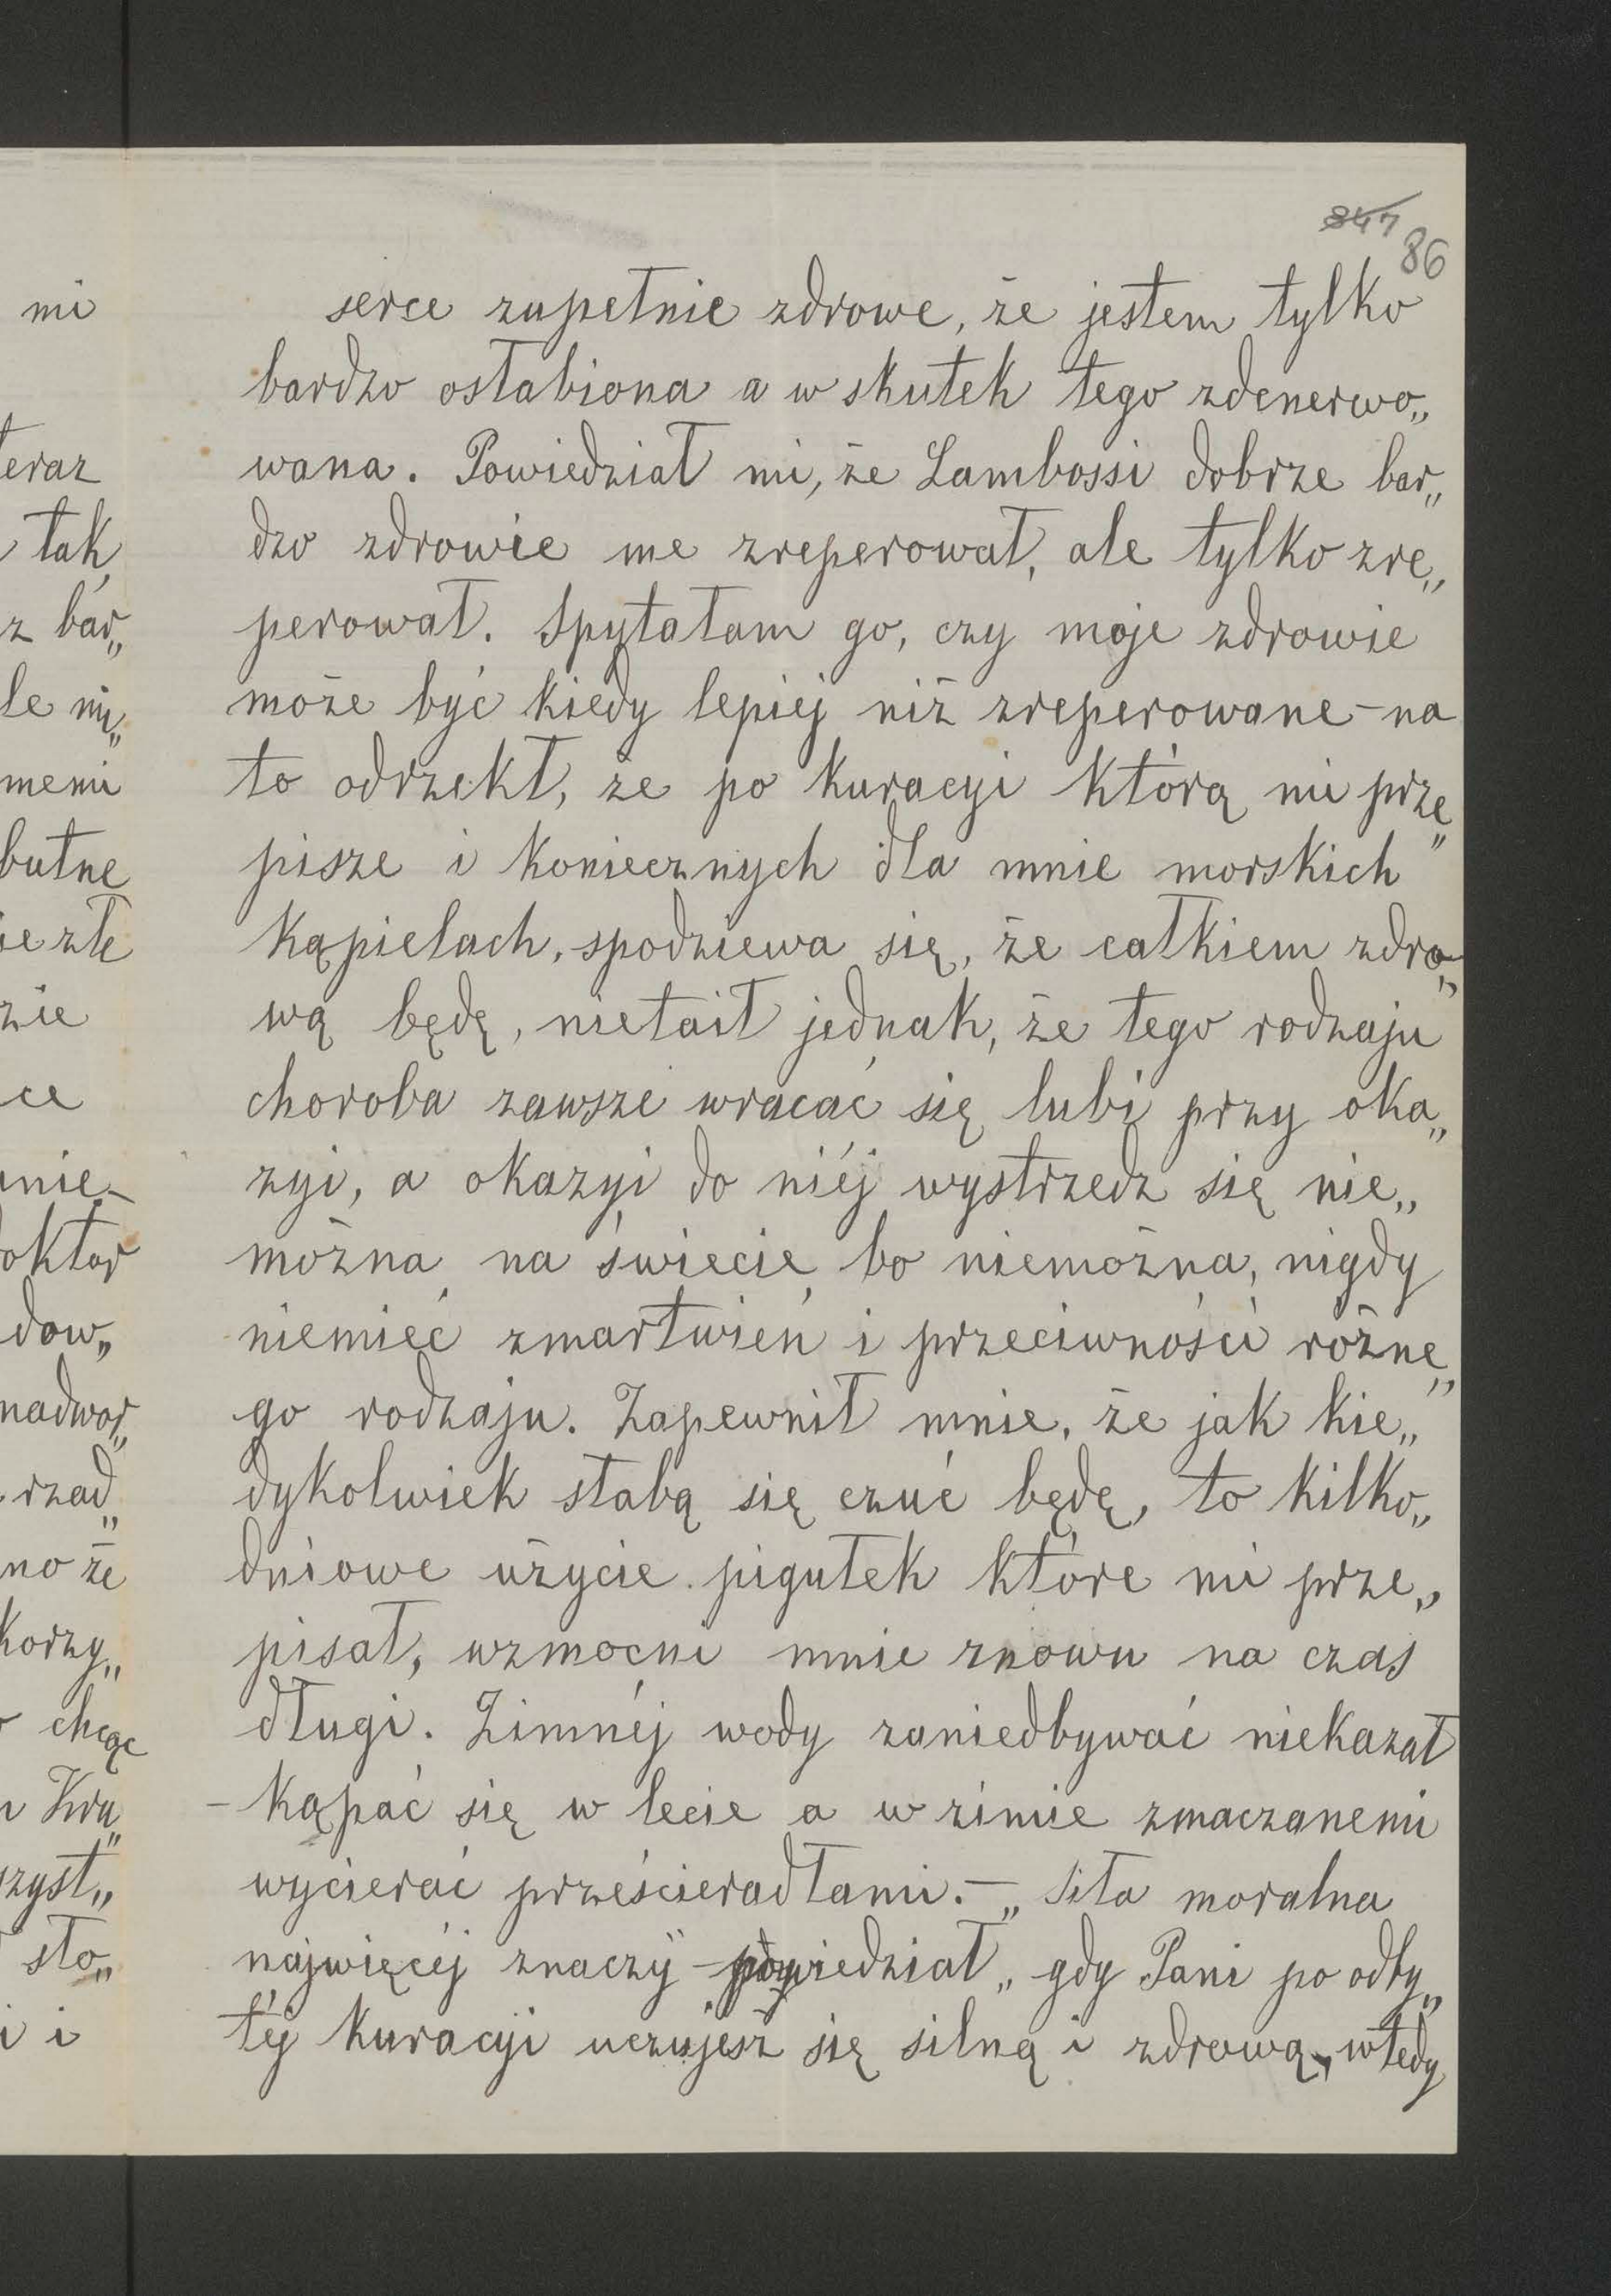 847
86
serce zupełnie zdrowe, że jestem tylko
bardzo osłabiona a w skutek tego zdenerwo„
wana. Powiedział mi, że Lambossi dobrze bar„
dzo zdrowie me zreperował, ale tylko zre„
perował. Spytałam go, czy moje zdrowie
może być kiedy lepiej niż zreperowane – na
to odrzekł, że po kuracyi którą mi prze„
pisze i koniecznych dla mnie morskich
kąpielach, spodziewa się, że całkiem zdro„
wą będę, nietaił jednak, że tego rodzaju
choroba zawsze wracać się lubi przy oka„
zyi, a okazyi do niéj wystrzedz się nie„
można na świecie, bo niemożna, nigdy
niemieć zmartwień i przeciwności różne„
go rodzaju. Zapewnił mnie, że jak kie„
dykolwiek słabą się czuć będę, to kilko„
dniowe użycie pigułek które mi prze„
pisał, wzmocni mnie znowu na czas
długi. Zimnéj wody zaniedbywać niekazał
– kąpać się w lecie a w zimie zmaczanemi
wycierać prześcieradłami. – „Siła moralna
najwięcéj znaczy – powiedział „gdy Pani po odby„
téj kuracyi uczujesz się silną i zdrową, wtedy
mi
teraz
tak
z bar„
le mi„
memi
butne
ie złe
zie
ce
anie –
doktor
dow„
nadwor„
rzad„
no że
korzy„
chcąc
Kra„
szyst„
sto„
i i